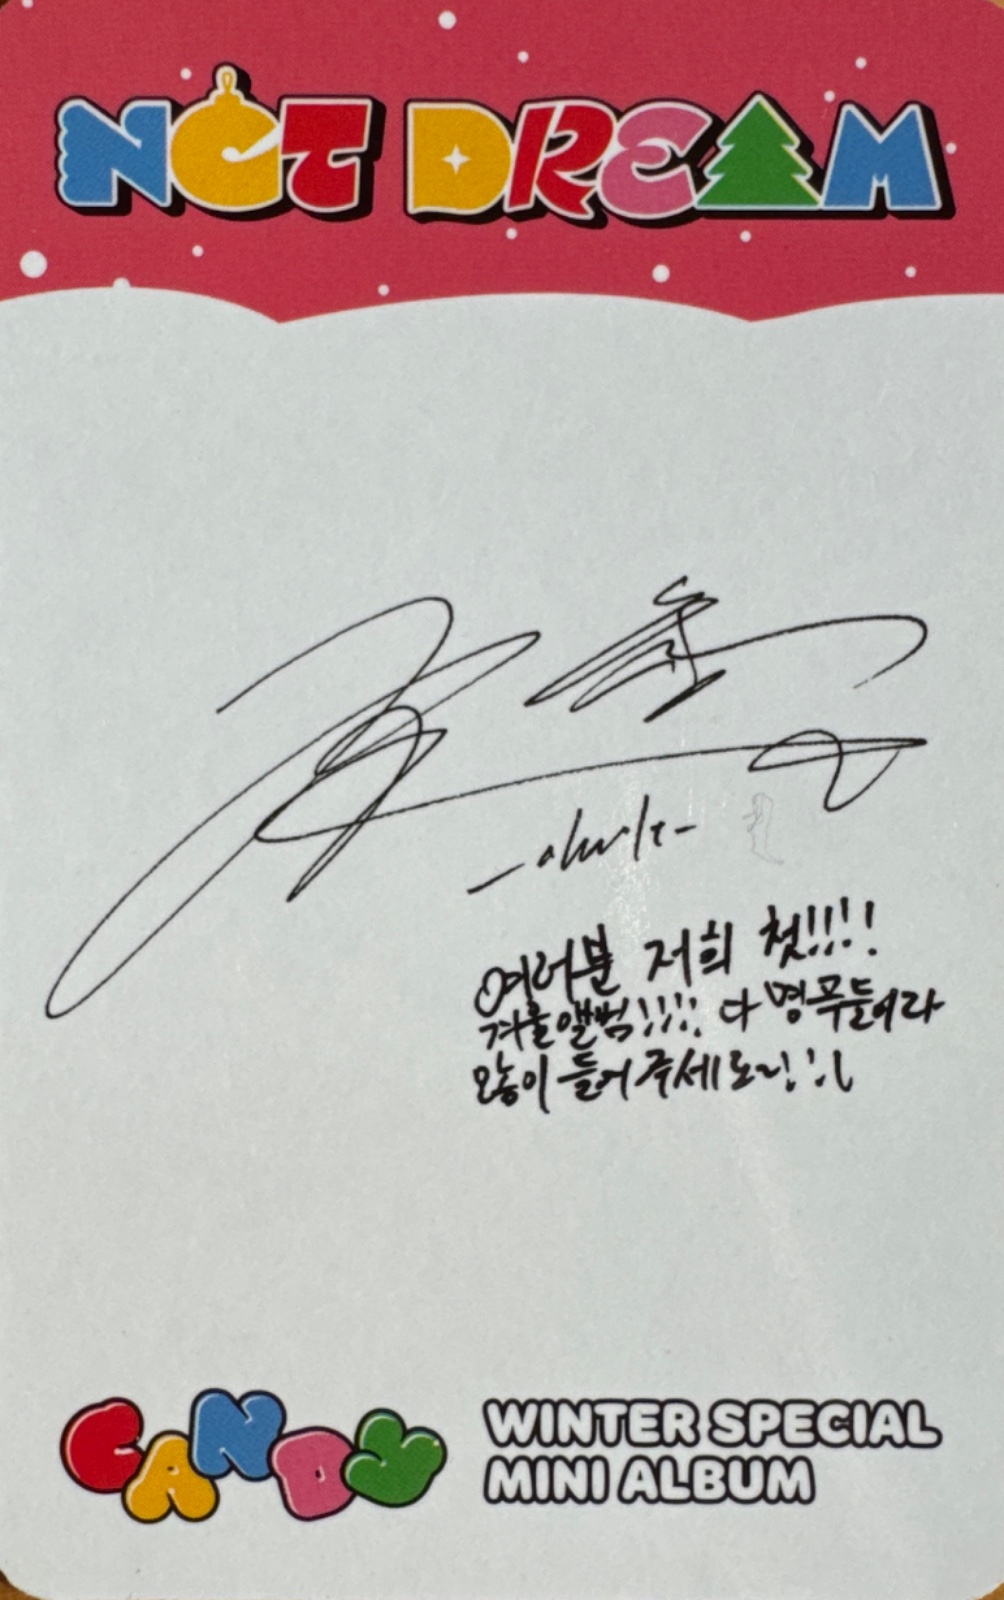 NCT DREAM
여러분 저희 첫!!!!
겨울앨범!!!! 다 명곡들이라
많이 들어 주세요~!!
CANDY
WINTER SPECIAL
MINI ALBUM